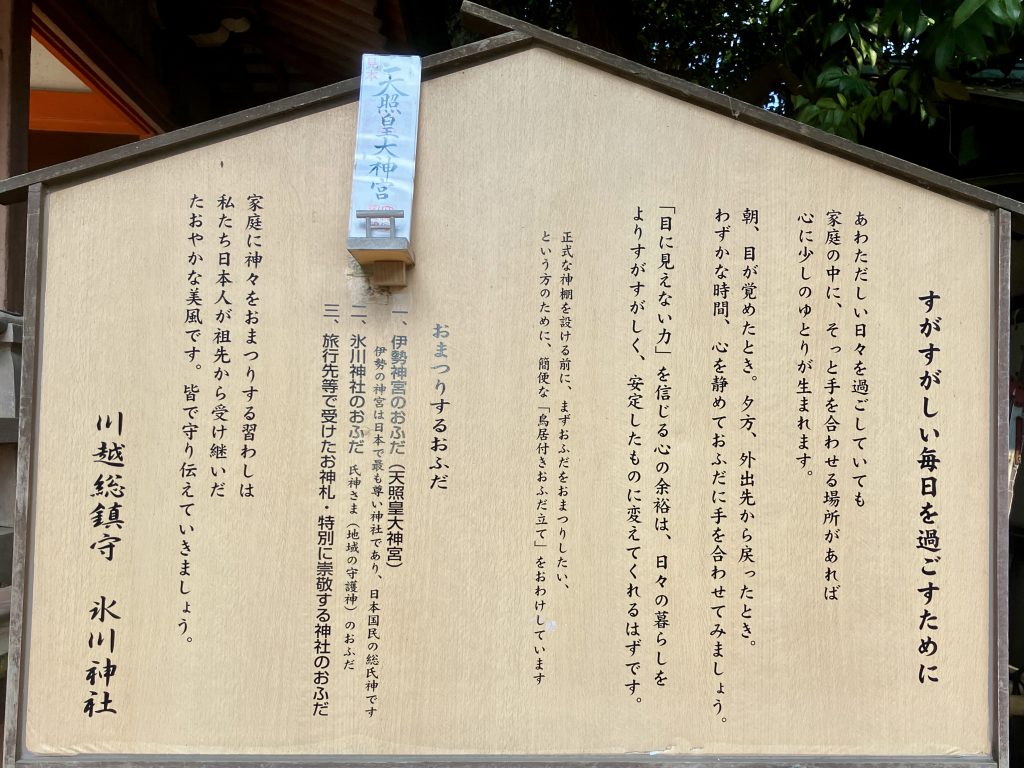 すがすがしい毎日を過ごすために
あわただしい日々を過ごしていても
家庭の中に、そっと手を合わせる場所があれば
心に少しのゆとりが生まれます。
朝、目が覚めたとき。夕方、外出先から戻ったとき。
わずかな時間、心を静めておふだに手を合わせてみましょう。
「目に見えない力」を信じる心の余裕は、日々の暮らしを
よりすがすがしく、安定したものに変えてくれるはずです。
正式な神棚を設ける前に、まずおふだをおまつりしたい、
という方のために、簡便な「鳥居付きおふだ立て」をおわけしています
おまつりするおふだ
一、伊勢神宮のおふだ（天照皇大神宮）
伊勢の神宮は日本で最も尊い神社であり、日本国民の総氏神です
二、氷川神社のおふだ 氏神さま（地域の守護神）のおふだ
三、旅行先等で受けたお神札・特別に崇敬する神社のおふだ
見本
天照皇大神宮
家庭に神々をおまつりする習わしは
私たち日本人が祖先から受け継いだ
たおやかな美風です。皆で守り伝えていきましょう。
川越総鎮守 氷川神社